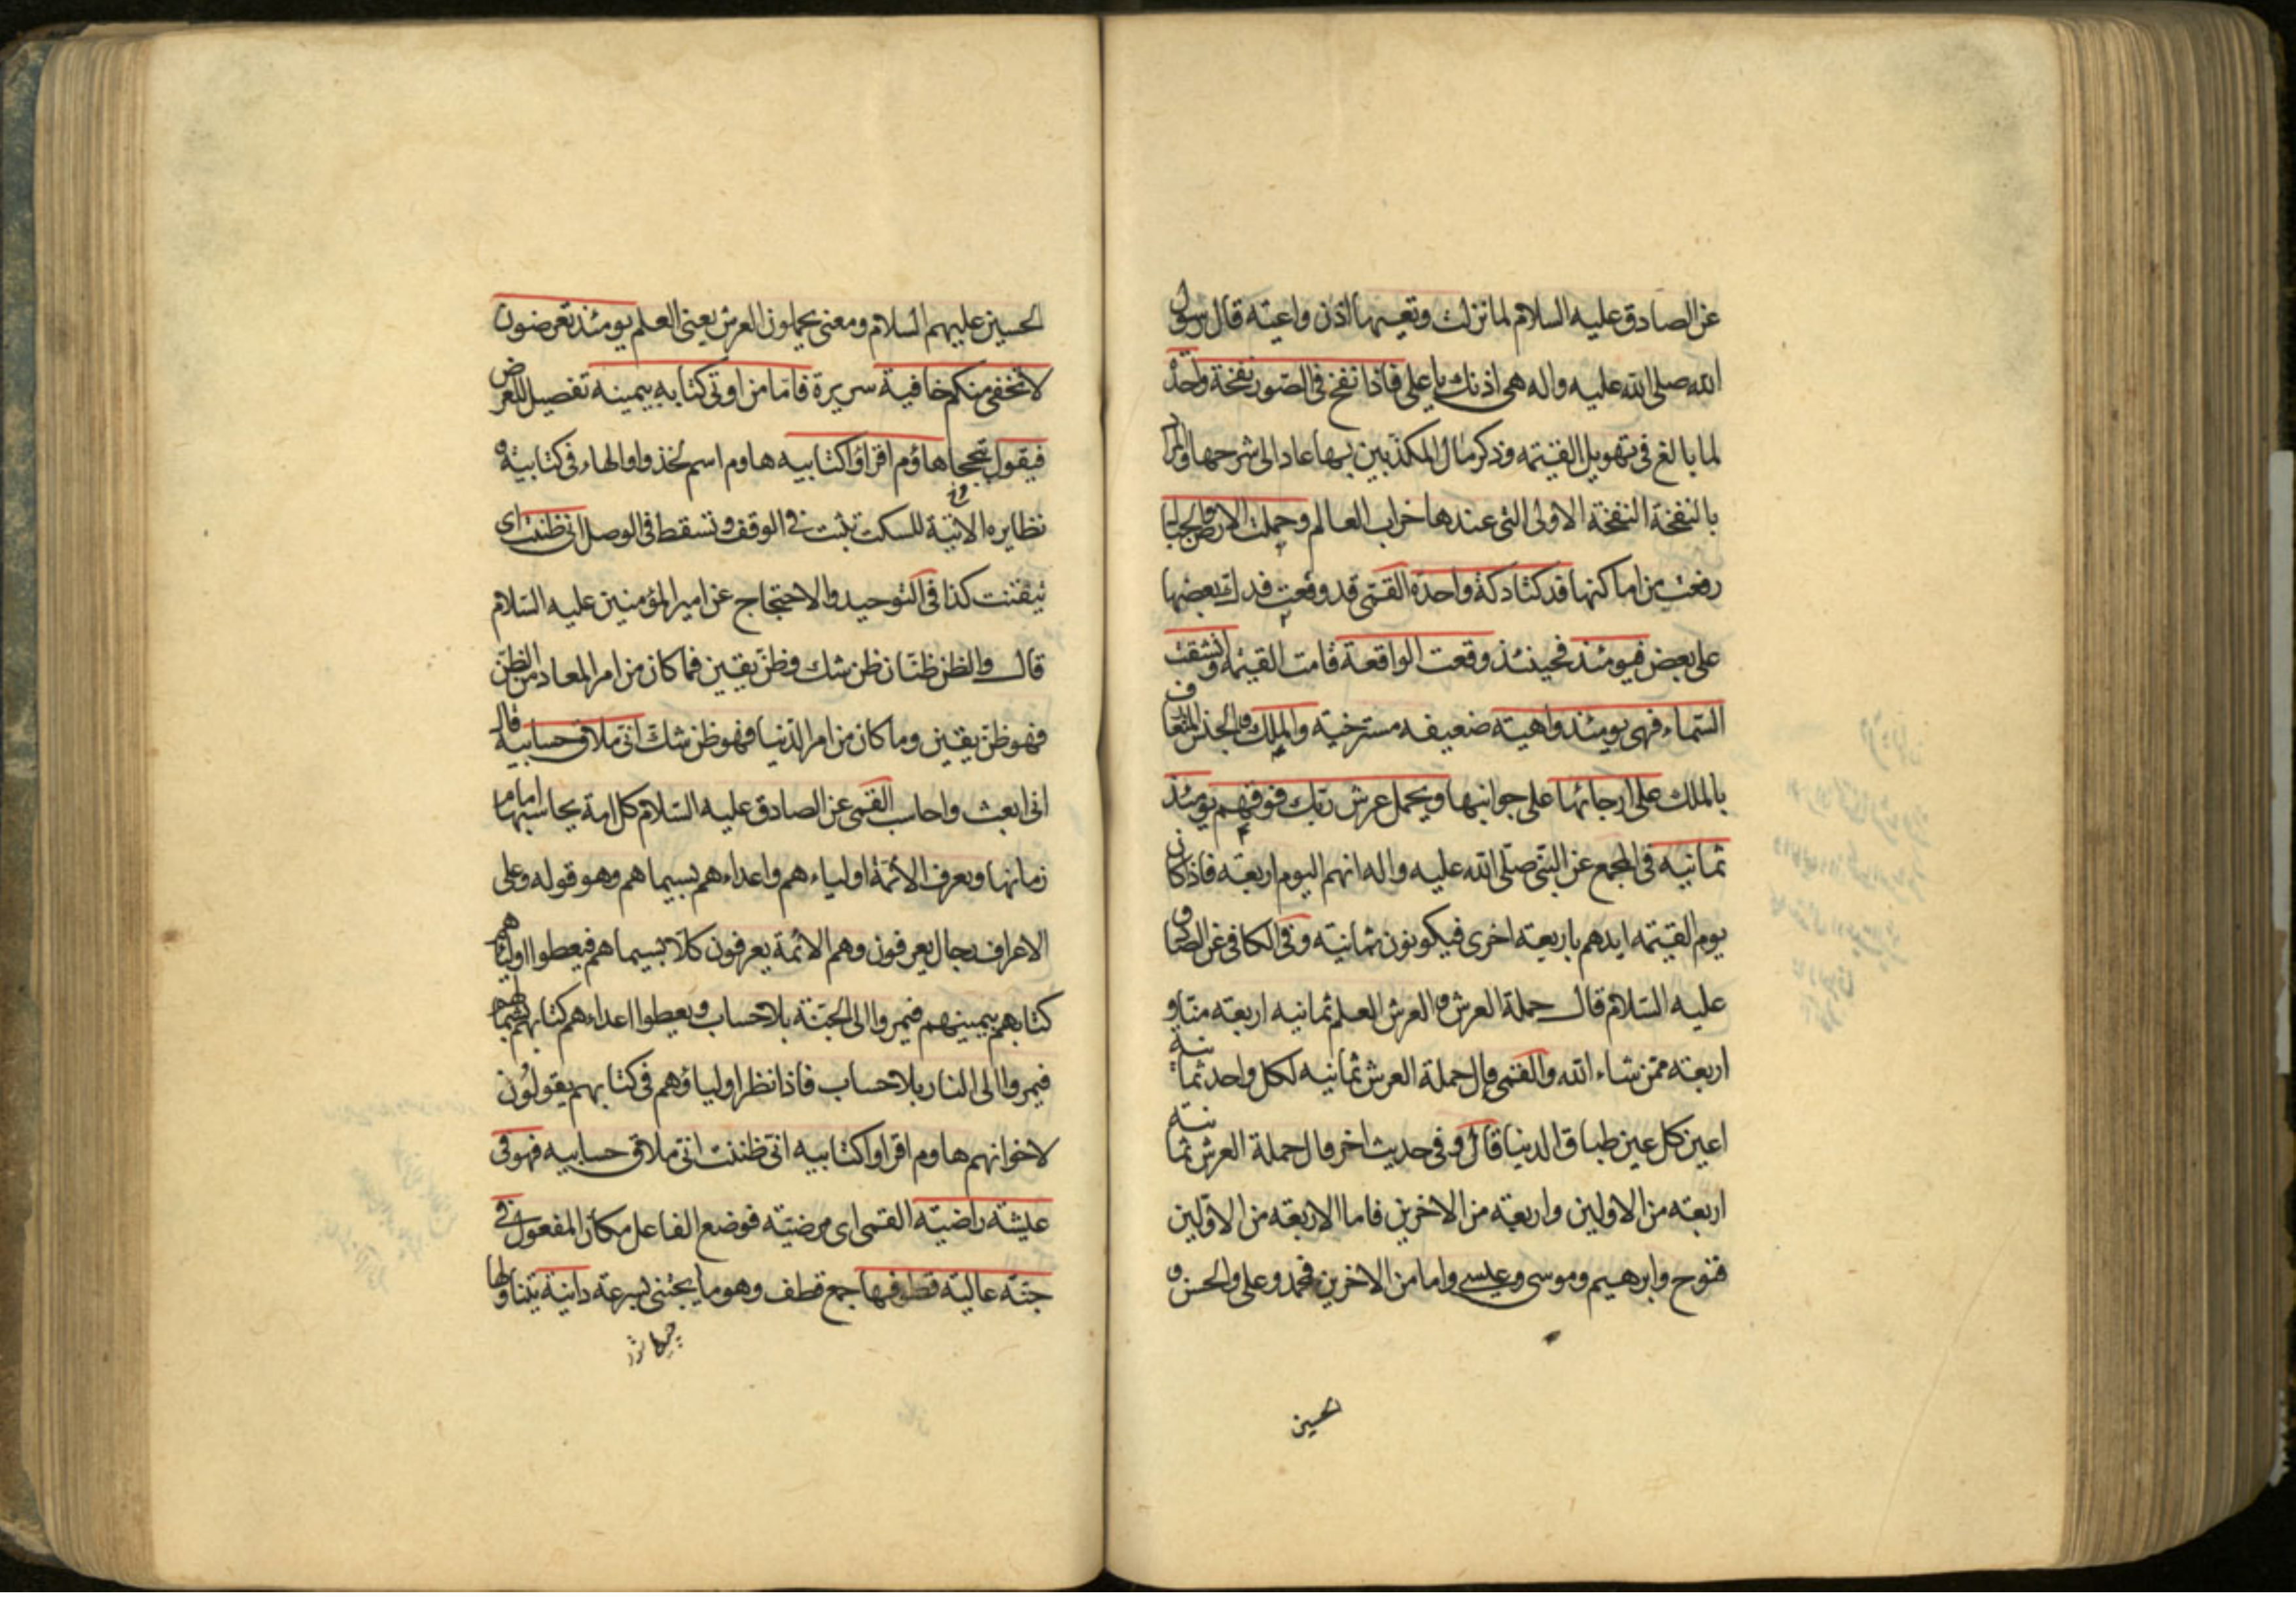 عن الصادق عليه السلام لما نزلت وتعيها اذن واعية قال رسول
الله صلى الله عليه واله هى اذنك يا على فاذا نفخ فى الصور نفخة واحدة
لما بالغ فى تهويل القيمة وذكر مال المكذبين بها عاد الى شرحها والمراد
بالنفخة النفخة الاولى التى عندها خراب العالم وحملت الارض والجبال
رفعت من اماكنها فدكتا دكة واحدة القمى قد وقعت فدك بعضها
على بعض فيومئذ فحينئذ وقعت الواقعة قامت القيمة وانشقت
السماء فهى يومئذ واهية ضعيفه مسترخية والملك والجنس المتعارف
بالملك على ارجائها على جوانبها ويحمل عرش ربك فوقهم يومئذ
ثمانيه فى المجمع عن النبى صلى الله عليه واله انهم اليوم اربعة فاذا كان
يوم القيمة ايدهم باربعة اخرى فيكونون ثمانية وفى الكافى عن الصادق
عليه السلام قال حملة العرش والعرش العلم ثمانيه اربعة منا و
اربعة ممن شاء الله والقمى قال حملة العرش ثمانيه لكل واحد ثمانية
اعين كل عين طباق الدنيا قال وفى حديث اخر قال حملة العرش ثمانية
اربعة من الاولين واربعة من الاخرين فاما الاربعة من الاولين
فنوح وابرهيم وموسى وعيسى واما من الاخرين فمحمد وعلى والحسن و
لحسين
الحسين عليهم السلام ومعنى يحملون العرش يعنى العلم يومئذ تعرضون
لا تخفى منكم خافية سريرة فاما من اوتى كتابه بيمينه تفصيل للعرض
فيقول تبجحا هاؤم اقراؤا كتابيه هاوم اسم لخذوا والهاء فى كتابيه و
نظايره الاتية للسكت تثبت فى الوقف وتسقط فى الوصل انى ظننت اى
تيقنت كذا فى التوحيد والاحتجاج عن امير المؤمنين عليه السلام
قال والظن ظنان ظن شك وظن يقين فما كان من امر المعاد من الظن
فهو ظن يقين وما كان من امر الدنيا فهو ظن شك انى ملاق حسابيه قال
انى ابعث واحاسب القمى عن الصادق عليه السلام كل امة يحاسبها امام
زمانها ويعرف الائمة اولياءهم واعداءهم بسيماهم وهو قوله وعلى
الاعراف رجال يعرفون وهم الائمة يعرفون كلا بسيماهم فيعطوا اولياءهم
كتابهم بيمينهم فيمروا الى الجنة بلا حساب ويعطوا اعداءهم كتابهم بشمالهم
فيمروا الى النار بلا حساب فاذا نظر اولياؤهم فى كتابهم يقولون
لاخوانهم هاوم اقراوا كتابيه انى ظننت انى ملاق حسابيه فهو فى
عيشة راضية القمى اى مرضية فوضع الفاعل مكان المفعول فى
جنة عالية قطوفها جمع قطف وهو ما يجتنى بسرعة دانية يتناولها